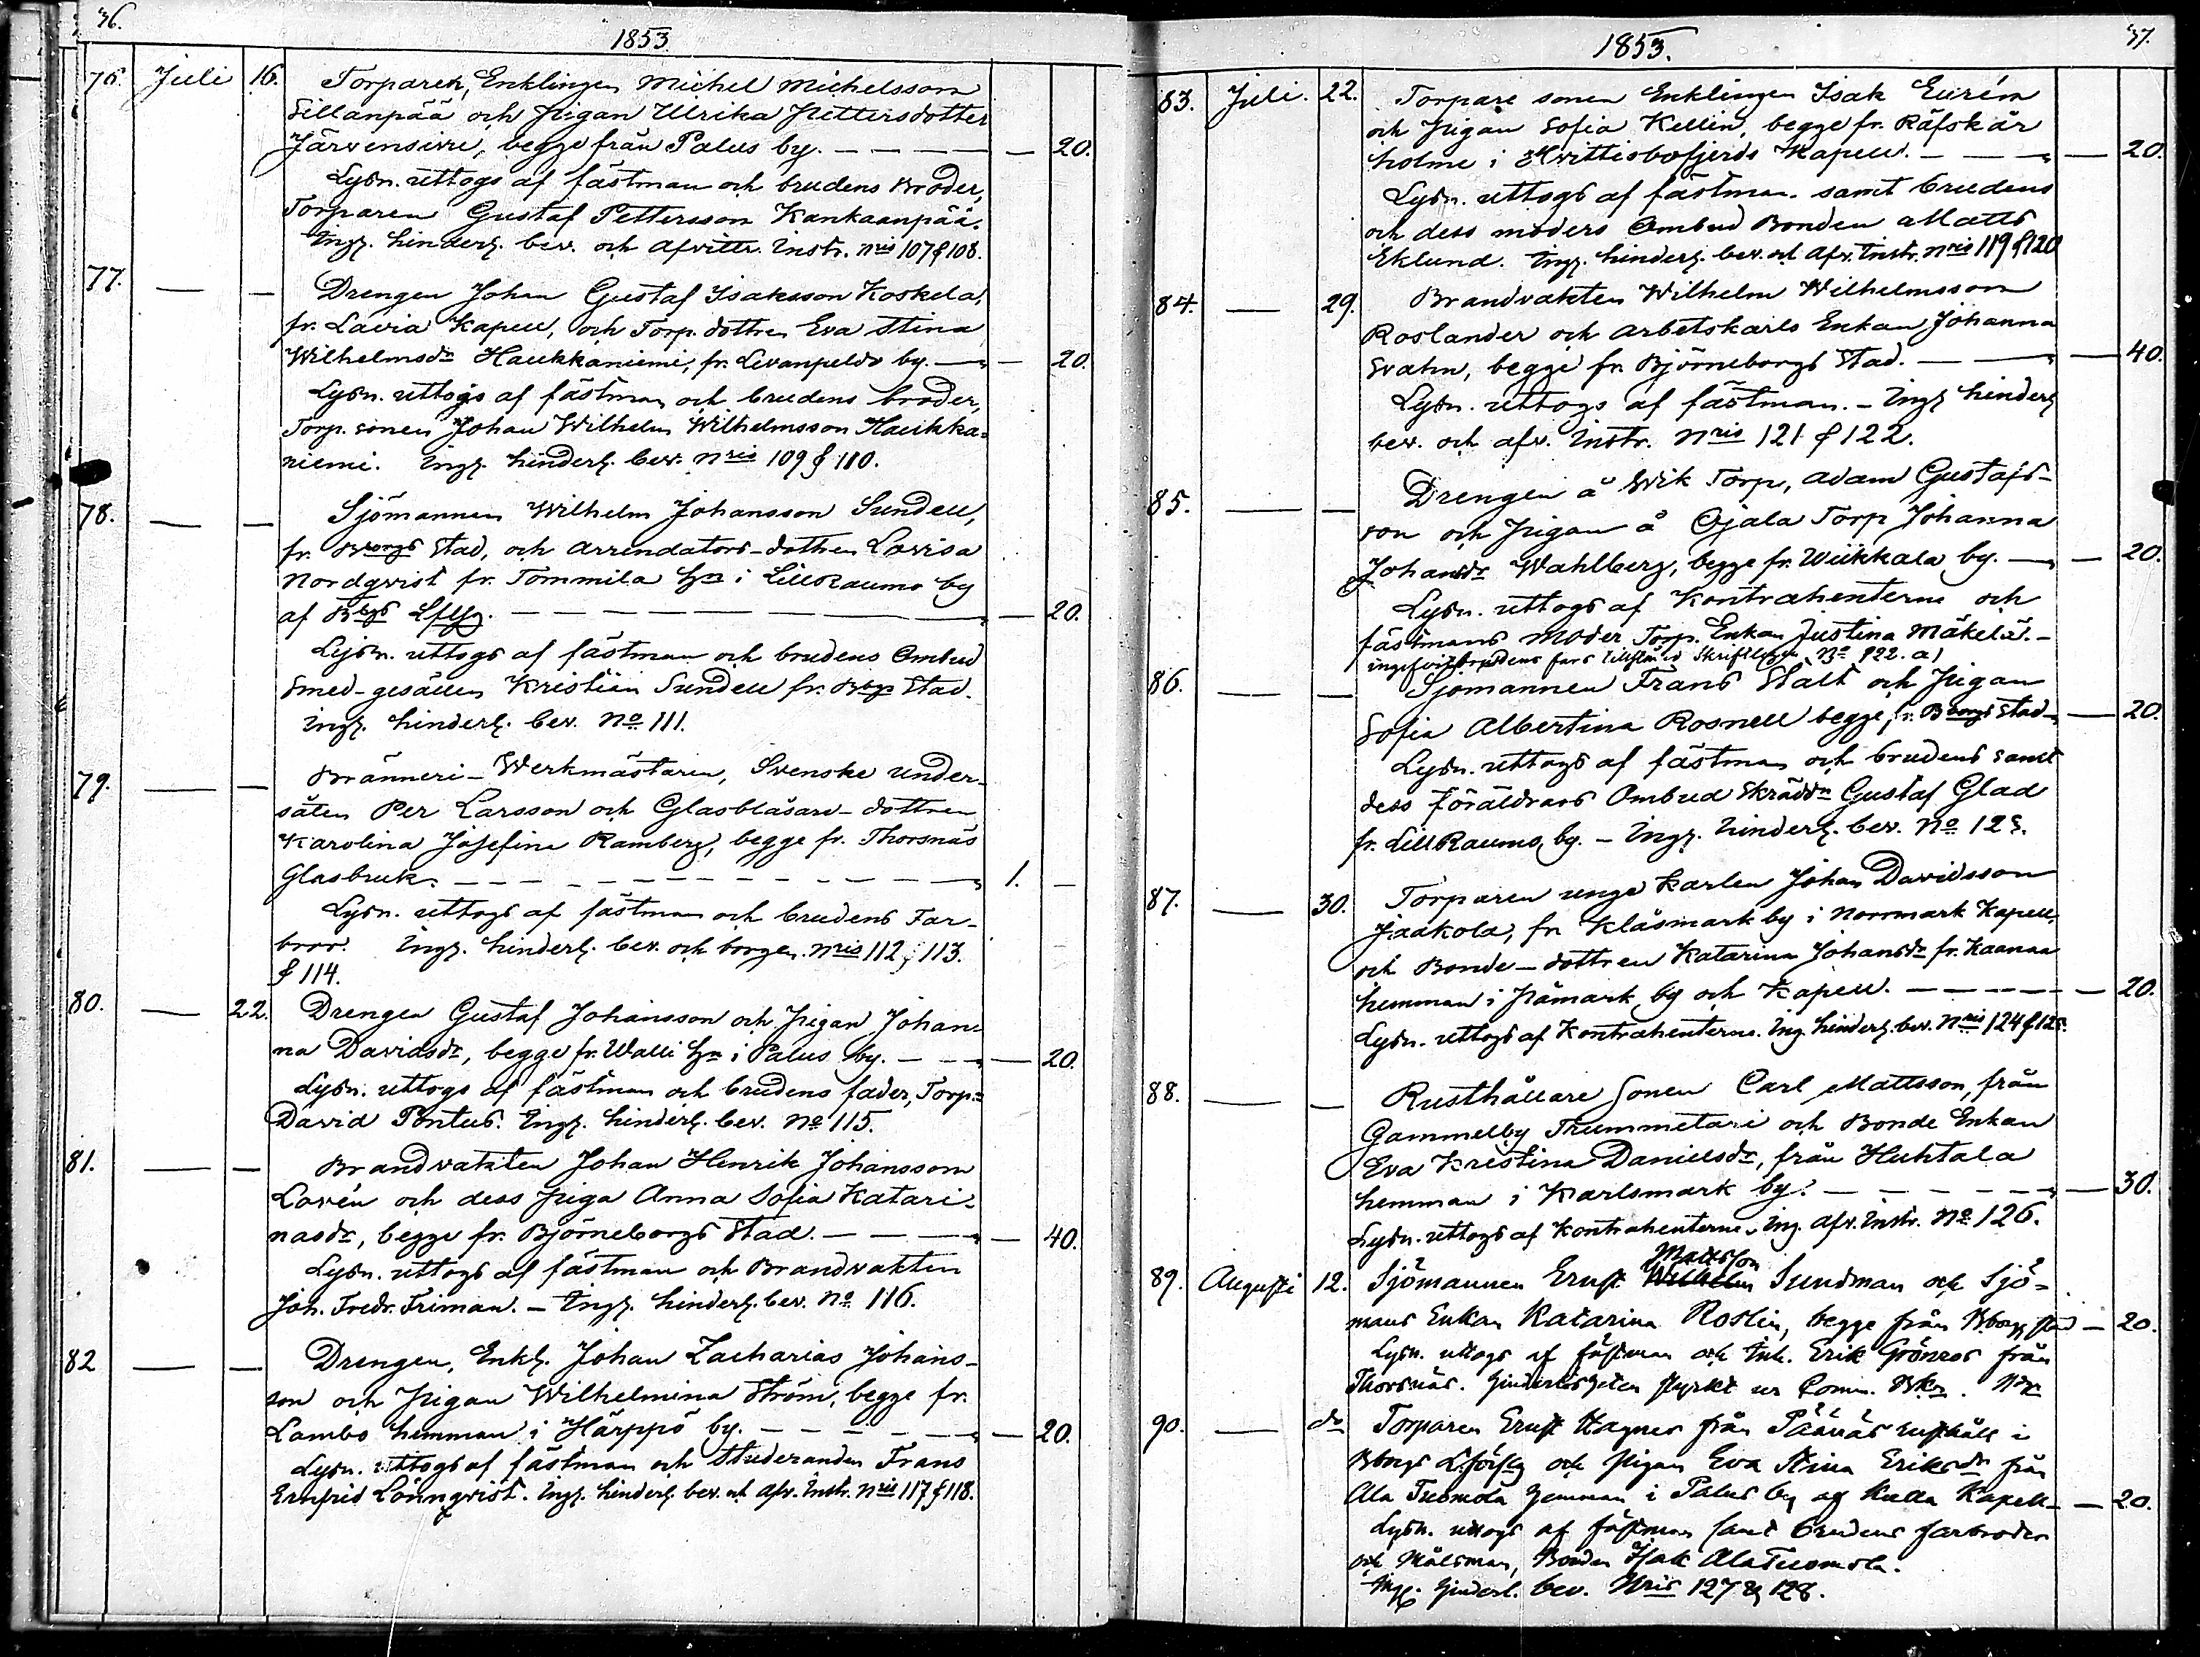 36.
1853.
76. Juli 16. Torparen, Enklingen Michel Michelsson
Sillanpää och Pigan Ulrika Pettersdotter
Järvensivu, begge från Palus by. — 20.
Lysn. uttogs af fästman och brudens Broder,
Torparen Gustaf Pettersson Kankaanpää.
Ingz. hinderl. bev. och Afvittr. Instr. Nris 107 & 108.
77. — — Drengen Johan Gustaf Isaksson Koskela,
fr. Lavia Kapell, och Torp. dottren Eva Stina
Wilhelmsdr Haukkaniemi, fr. Levanpeldo by. — 20.
Lysn. uttogs af fästman och brudens broder,
Torp. sonen Johan Wilhelm Wilhelmsson Haukka-
niemi. Ingz. hinderl. bev. Nris 109 & 110.
78. — — Sjömannen Wilhelm Johansson Sundell,
fr. Bborgs Stad, och Arrendators-dottren Lovisa
Nordqvist fr. Tommila hn i LillRaumo by
af Bbgs — 20.
Lysn. uttogs af fästman och brudens Ombud
Smed-gesällen Kristian Sundell fr. Bbgs Stad.
Ingz. hinderl. bev. No 111.
79. — — Bränneri-Werkmästaren, Svenske under-
såten Per Larsson och Glasblåsare-dottren
Karolina Josefina Ramberg, begge fr. Thorsnäs
Glasbruk. — 1. —
Lysn. uttogs af fästman och brudens Far-
bror. Ingz. hinderl. bev. och borgen. Nris 112, 113.
& 114.
80. — 22. Drengen Gustaf Johansson och Pigan Johan-
na Davidsdr, begge fr. Walli hn i Palus by. — 20.
Lysn. uttogs af fästman och brudens fader, Torp.
David Pontus. Ingz. hinderl. bev. No 115.
81. — — Brandvakten Johan Henrik Johansson
Lovén och dess Piga Anna Sofia Katari-
nasdr, begge fr. Björneborgs Stad. — 40.
Lysn. uttogs af fästman och Brandvakten
Joh. Fredr. Friman. — Ingz. hinderl. bev. No 116.
82 — — Drengen, Enkl. Johan Zacharias Johans-
son och Pigan Wilhelmina Ström, begge fr.
Lambo hemman i Härppö by. — 20.
Lysn. uttogs af fästman och Studeranden Frans
Ernfrid Lönnqvist. Ingz. hinderl. bev. och Afv. Instr. Nris 117 & 118.
37.
1853.
83. Juli. 22. Torpare sonen Enklingen Isak Eurén
och Pigan Sofia Kellin, begge fr. Räfskär
holme i Hvittisbofjerds Kapell. — 20.
Lysn. uttogs af fästman samt brudens
och dess moders Ombud Bonden Matts
Eklund. Ingz. hinderl. bev. och Afv. Instr. Nris 119 & 120
84. — 29. Brandvakten Wilhelm Wilhelmsson
Roslander och Arbetskarls Enkan Johanna
Svahn, begge fr. Björneborgs Stad. — 40.
Lysn. uttogs af fästman. — Ingz hinderl
bev. och afv. Instr. Nris 121 & 122.
85. — — Drengen å Wik Torp, Adam Gustafs-
son och Pigan å Ojala Torp Johanna
Johansdr Wahlberg, begge fr. Wiikkala by. — 20.
Lysn. uttogs af Kontrahenterne och
fästmans Moder, Torp. Enkan Justina Mäkelä. —
brudens fars Skriftligen No 122. a)
86. — — Sjömannen Frans Stält och Pigan
Sofia Albertina Rosnell begge fr. Bborgs Stad — 20.
Lysn. uttogs af fästman och brudens samt
dess föräldrars Ombud Skrädd. Gustaf Glad
fr. LillRaumo by. — Ingz. hinderl. bev. No 123.
87. — 30. Torparen unge Karlen Johan Davidsson
Jaakola, fr. Klåsmark by i Norrmark Kapell,
och Bonde-dottren Katarina Johansdr fr. Kaanaa
hemman i Påmark by och Kapell. — 20.
Lysn. uttogs af Kontrahenterne. Ing. hinderl. bev. Nris 124 & 125.
88. — — Rusthållare Sonen Carl Mattsson, från
Gammelby Trummetari och Bonde Enkan
Eva Kristina Danielsdr, från Huhtala
hemman i Karlsmark by. — 30.
Lysn. uttogs af Kontrahenterne. Ing. Afv. Instr. No 126.
Mattsson
89. Augusti 12. Sjömannen Ernst Wilhelm Sundman och Sjö-
mans Enkan Katarina Roslin, begge från Bborgs stad — 20.
Lysn. uttogs af fästman och Inh. Erik Grönros från
Thorsnäs. Hinderlösheten styrkt ur Comm. Bkn.
90. — do Torparen Ernst Hagner från Päävä's rusthåll i
Bborgs och Pigan Eva Stina Eriksdr från
Ala Tuomola hemman i Palus by af Kulla Kapell — 20.
Lysn. uttogs af fästman samt brudens farbroder
och Målsman, Bonden Isak AlaTuomola.
Ingz. hinderl. bev. Nris 127 & 128.